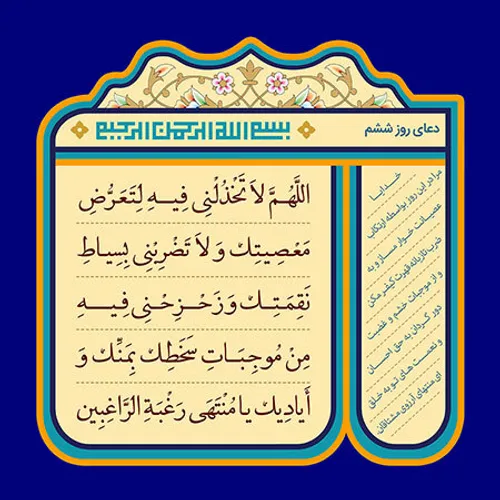 دعای روز ششم
بسم الله الرحمن الرحیم
اللَّهُمَّ لاَ تَخْذُلْنِی فِیهِ لِتَعَرُّضِ
مَعْصِیَتِكَ وَ لاَ تَضْرِبْنِی بِسِیَاطِ
نَقِمَتِكَ وَ زَحْزِحْنِی فِیهِ
مِنْ مُوجِبَاتِ سَخَطِكَ بِمَنِّكَ وَ
أَیَادِیكَ یَا مُنْتَهَى رَغْبَةِ الرَّاغِبِینَ
خدایا
مرا در این روز بواسطه ارتکاب
عصیانت خوار مساز و به
ضرب تازیانه قهرت کیفر مکن
و از موجبات خشم و غضبت
دور گردان به حق احسان
و نعمت های تو به خلق
ای منتهای آرزوی مشتاقان